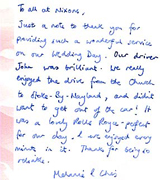 To all at Nixons.
Just a note to thank you for
providing such a wonderful service
on our Wedding Day. Our driver
John was brilliant. We really
enjoyed the drive from the Church
to Stoke-By-Nayland, and didn't
want to get out of the car! It
was a lovely Rolls Royce - perfect
for our day. & we enjoyed every
minute in it. Thanks for being so
reliable.
Melanie & Chris